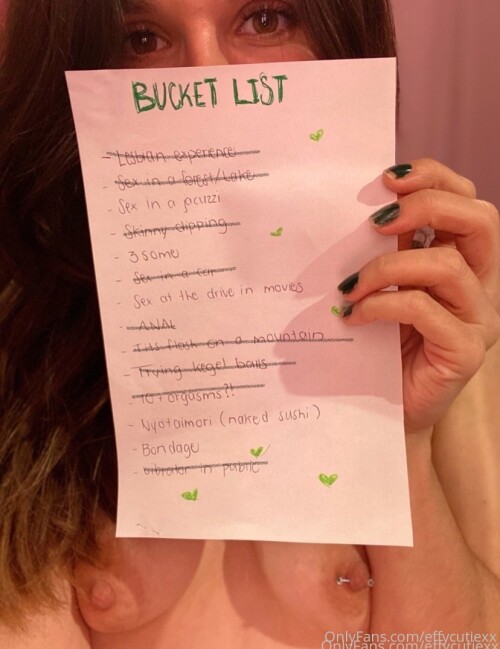 BUCKET LIST
- Lesbian experience
- Sex in a forest/Lake
- Sex in a jacuzzi
- Skinny dipping
- 3 some
- Sex in a car
- Sex at the drive in movies
- ANAL
- Tits flash on a mountain
- Trying kegel balls
- 10+ orgasms?!
- Nyotaimori (naked sushi)
- Bondage
- vibrator in public
OnlyFans.com/effycutiexx
OnlyFans.com/effycutiexx